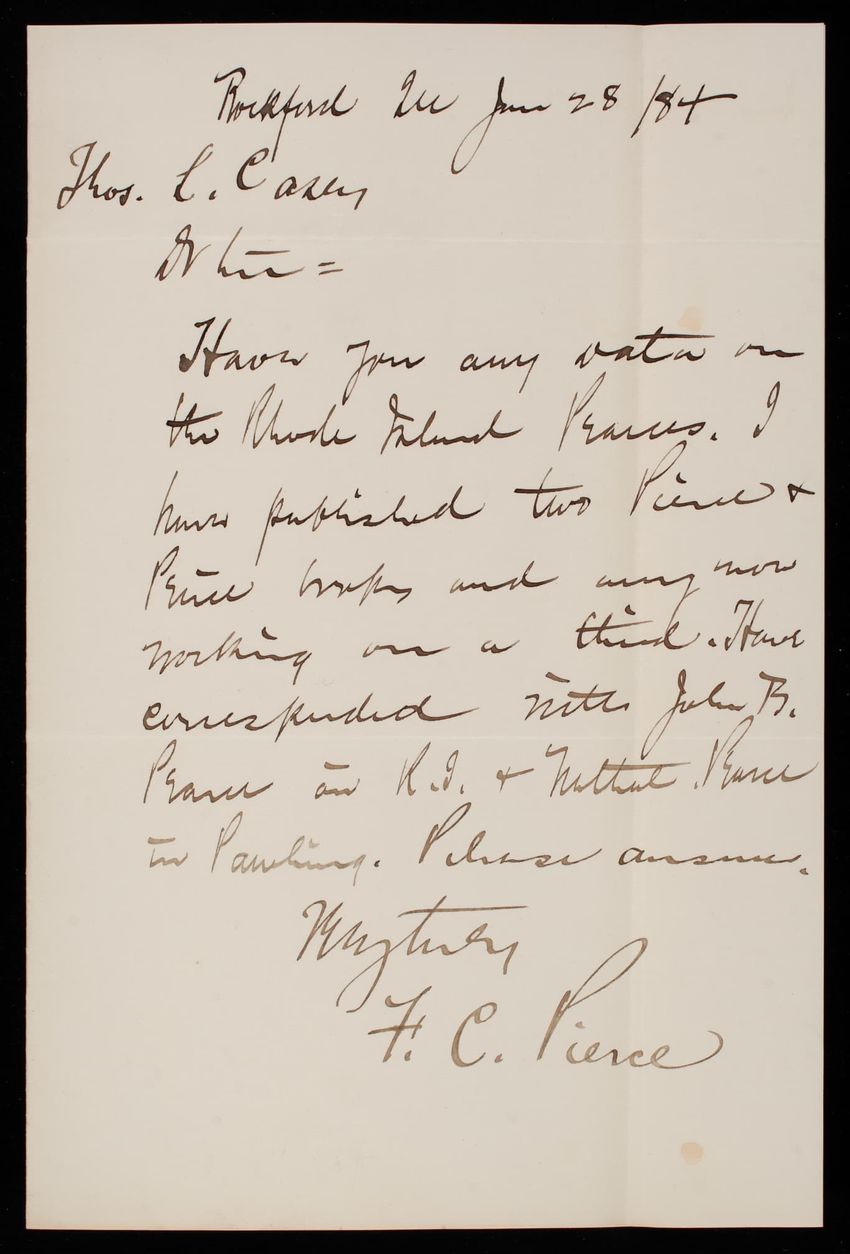 Rockford Ill Jan 28/84
Thos. L. Casey
Dr Sir =
Have you any data on
the Rhode Island Pearces. I
have published two Pierce &
Peirce books and am now
working on a third. Have
corresponded with John B.
Pearce in R.I. & Nathal. Pearce
in Pawling. Please answer.
Very truly
F. C. Pierce